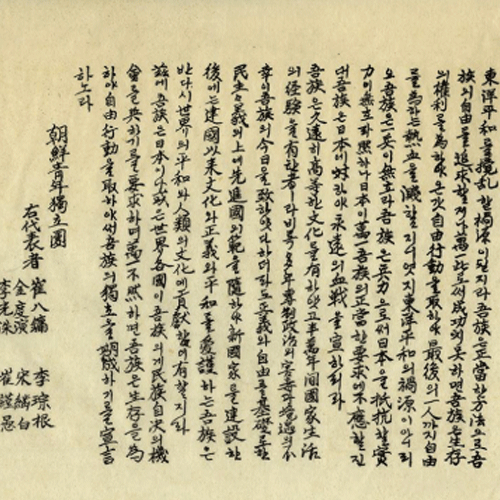 東洋平和를攪乱할禍源이될지라吾族은正當한方法으로吾
族의自由를追求할지나萬一此로써成功치못하면吾族은生存
의權利를為하야온갓自由行動을取하야最後의一人까지自由
를為하는熱血을濺할지니엇지東洋平和의禍源이아니리
오吾族은一兵이無호라吾族은兵力으로써日本을抵抗할實
力이無호라然하나日本이萬一吾族의正當한要求에不應할진
대吾族은日本에対하야永遠의血戰을宣하리라
吾族은久遠히高等한文化를有하얏고半萬年间國家生活
의经験을有한者라비록多年專制政治의害毒과境遇의不
幸이吾族의今日을致하얏다하더라도正義와自由를基礎로한
民主主義의上에先進國의範을隨하야新國家를建設한
後에는建國以来文化와正義와平和를愛護하는吾族은
반다시世界의平和와人類의文化에貢献함이有할지라
玆에吾族은日本이나或은世界各國이吾族의게民族自決의機
會를與하기를要求하며萬一不然하면吾族은生存을為
하야自由行動을取하야써吾族의獨立을期成하기를宣言
하노라
朝鮮青年獨立團
右代表者 崔八鏞 李琮根
金度演 宋継白
李光洙 崔謹愚